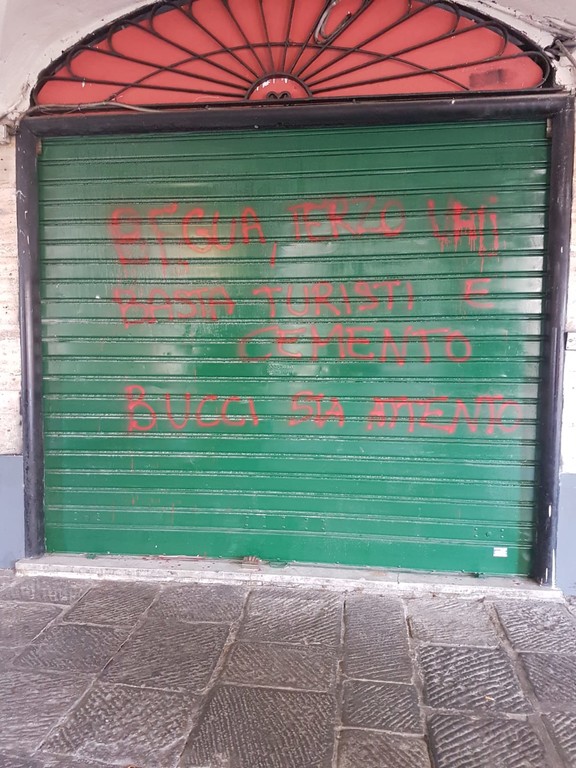 TERZO
BASTA TURISTI E
CEMENTO
BUCCI STA ATTENTO